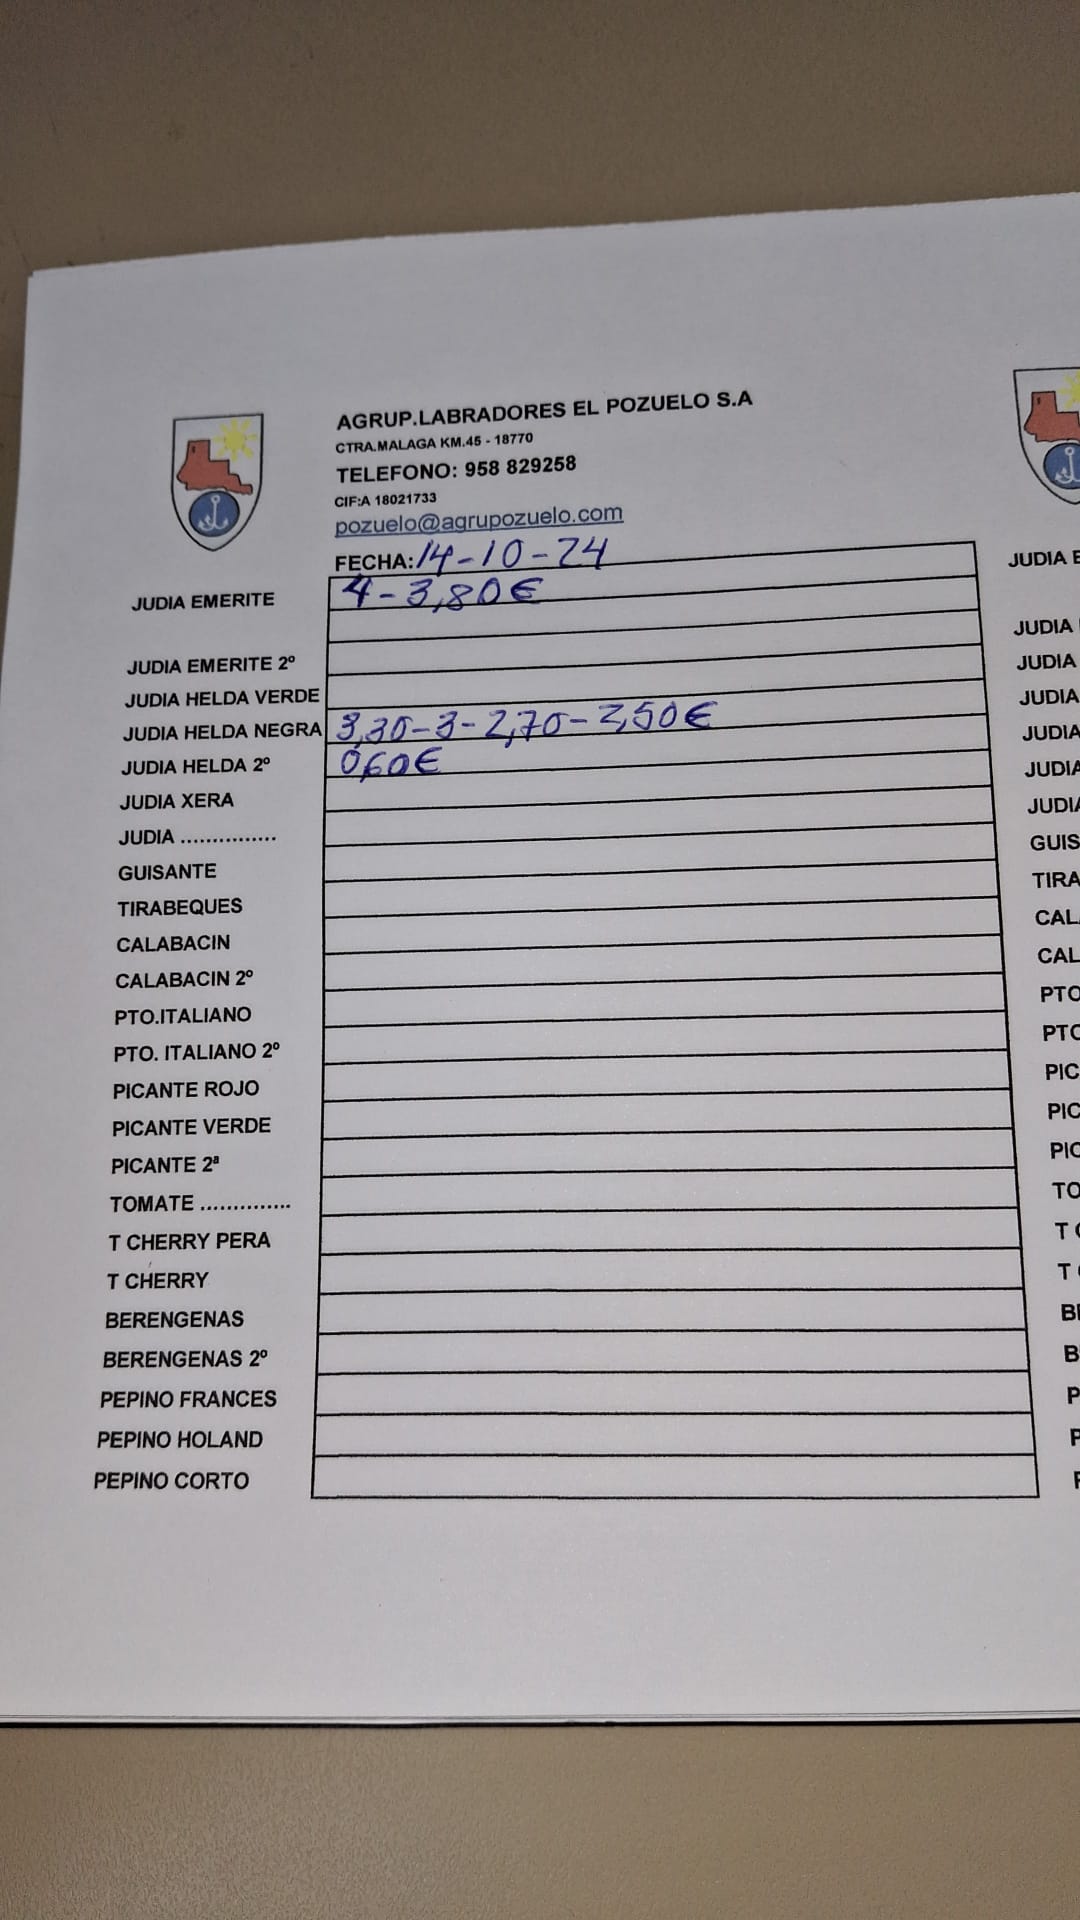 AGRUP.LABRADORES EL POZUELO S.A
CTRA.MALAGA KM.45 - 18770
TELEFONO: 958 829258
CIF:A 18021733
pozuelo@agrupozuelo.com
FECHA: 14-10-24
JUDIA EMERITE 4-3,80€
JUDIA EMERITE 2º
JUDIA HELDA VERDE
JUDIA HELDA NEGRA 3,30-3-2,70-2,50€
JUDIA HELDA 2º 0,60€
JUDIA XERA
JUDIA ...............
GUISANTE
TIRABEQUES
CALABACIN
CALABACIN 2º
PTO.ITALIANO
PTO. ITALIANO 2º
PICANTE ROJO
PICANTE VERDE
PICANTE 2ª
TOMATE ..............
T CHERRY PERA
T CHERRY
BERENGENAS
BERENGENAS 2º
PEPINO FRANCES
PEPINO HOLAND
PEPINO CORTO
JUDIA E
JUDIA
JUDIA
JUDIA
JUDIA
JUDIA
JUDIA
GUIS
TIRA
CAL
CAL
PTO
PTO
PIC
PIC
PIC
TO
T
T
BE
B
P
P
P